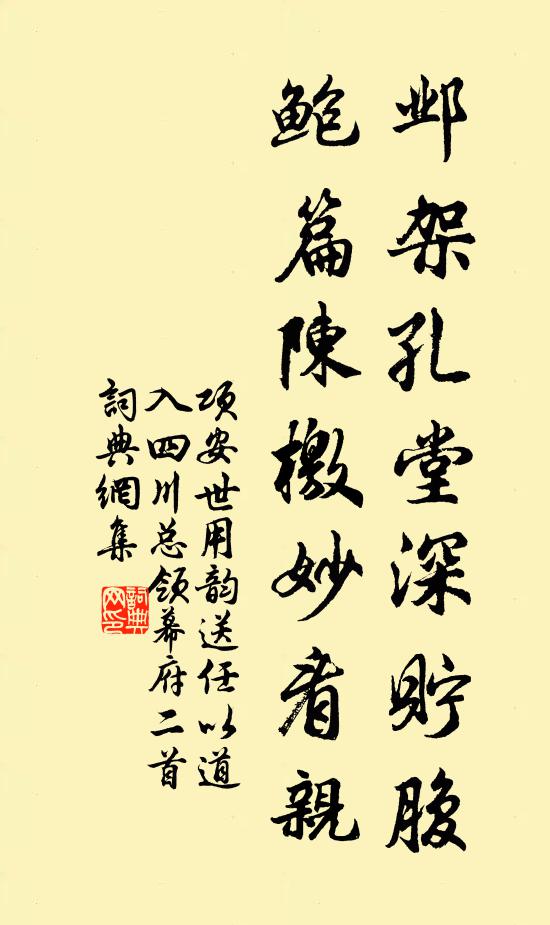 邺架孔堂深贮腹
鲍篇陳檄妙看親
项安世用韵送任以道
入四川总领幕府二首
詞典網集
詞典网印